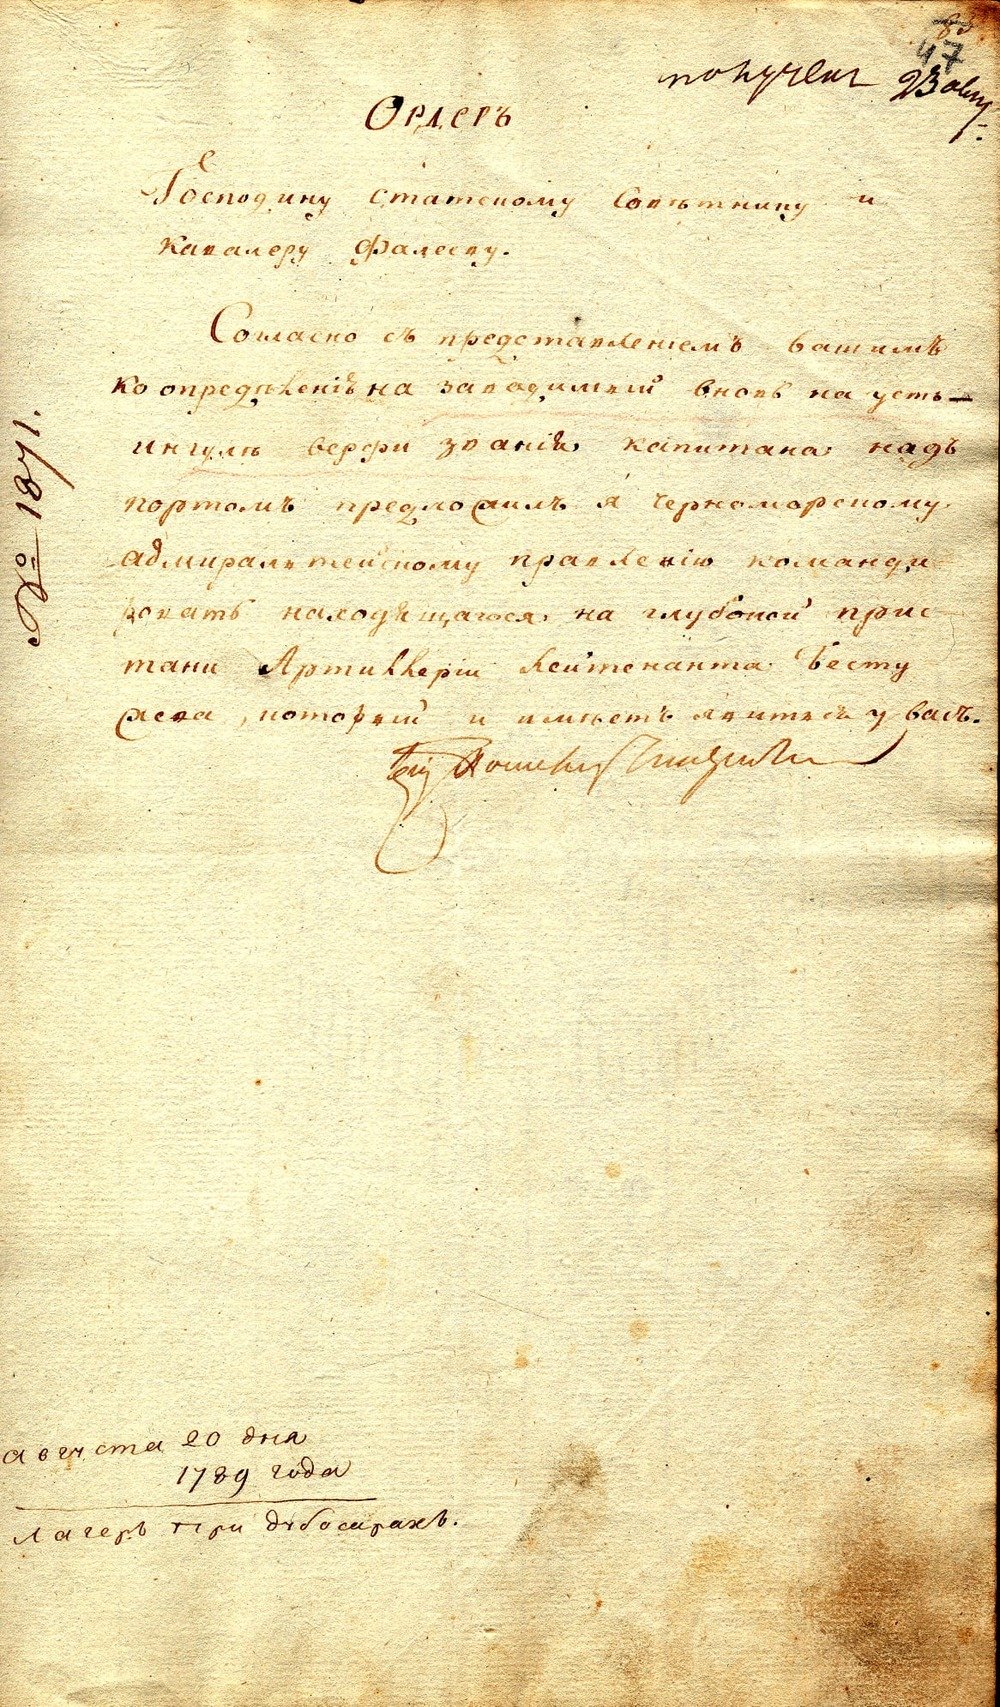 47
получен 23 авгу
Ордеръ
Господину статскому Советнику и
Кавалеру Фалееву.
Согласно съ представленіемъ вашимъ
ко определенію на заводимой вновь на усть
ингулѣ верфи званія капитана надъ
портомъ предложилъ я черноморскому
адмиралтейскому правленію команди
ровать находящагося на глубокой прис
тани Артиллеріи Лейтенанта Бесту
жева, который и имѣетъ явится у васъ.
№ 1871.
августа 20 дня
1789 года
Лагерь при дубосарахъ.